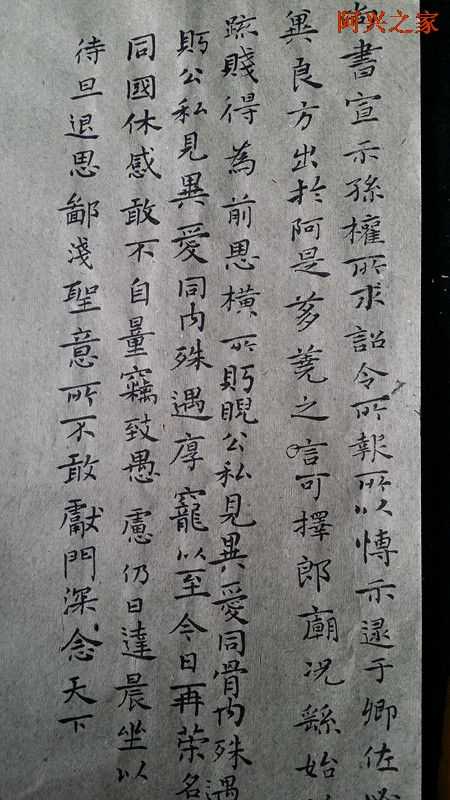 阿兴之家
尚書宣示孫權所求詔令所報所以博示逮于卿佐必
冀良方出於阿是芻蕘之言可擇郎廟況繇始
疏賤得為前恩橫所眄睨公私見異愛同骨肉殊遇
眄公私見異愛同内殊遇厚寵以至今日再榮名
同國休感敢不自量竊致愚慮仍日達晨坐以
待旦退思鄙淺聖意所不敢獻門深念天下